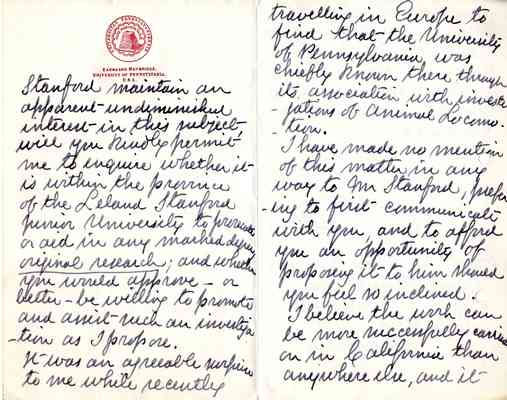 EADWEARD MUYBRIDGE,
UNIVERSITY OF PENNSYLVANIA,
U.S.A.
Stanford maintain an
apparent undiminished
interest in this subject,
will you kindly permit
me to inquire whether it
is within the province
of the Leland Stanford
Junior University to promote
or aid in any marked degree
original research; and whether
you would approve - or
better - be willing to promote
and assist such an investiga
-tion as I propose.
It was an agreeable surprise
to me while recently
travelling in Europe to
find that the University
of Pennsylvania was
chiefly known there through
its association with investi
-gations of Animal Locomo-
-tion.
I have made no mention
of this matter in any
way to Mr Stanford, prefer
-ing to first communicate
with you, and to afford
you an opportunity of
proposing it to him should
you feel so inclined.
I believe the work can
be more successfully carried
on in California than
anywhere else, and it